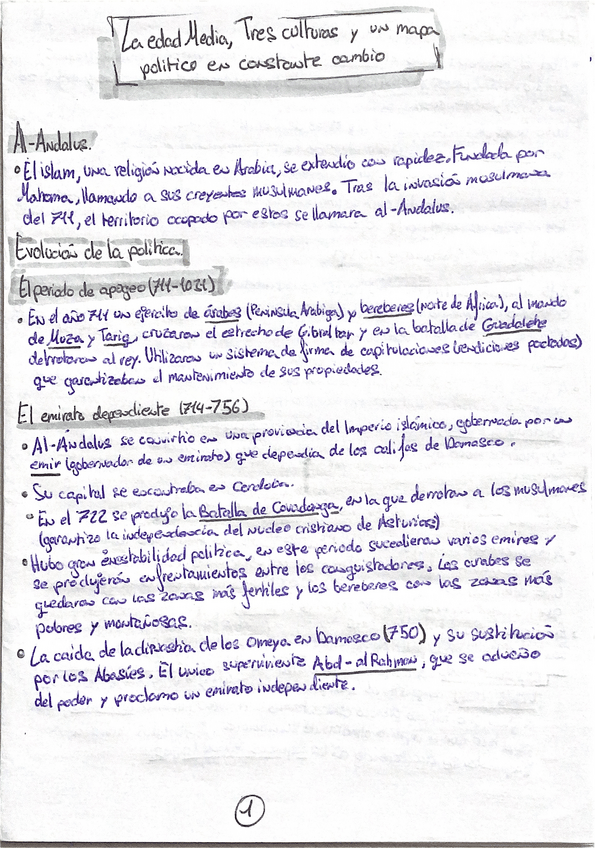 La edad Media, Tres culturas y un mapa
politico en constante cambio
Al-Andalus.
• El islam, una religión nacida en Arabia, se extendio con rapidez. Fundada por
Mahoma, llamando a sus creyentes musulmanes. Tras la invasión musulmana
del 711, el territorio ocupado por estos se llamara al-Andalus.
Evolución de la politica.
El periodo de apogeo (711-1031)
• En el año 711 un ejercito de árabes (Peninsula Arabiga) y bereberes (norte de Africa), al mando
de Muza y Tariq, cruzaron el estrecho de Gibraltar y en la batalla de Guadalete
derrotaron al rey. Utilizaron un sistema de firma de capitulaciones (rendiciones pactadas)
que garantizaban el mantenimiento de sus propiedades.
El emirato dependiente (714-756)
• Al-Andalus se convirtio en una provincia del Imperio islámico, gobernada por un
emir (gobernador de un emirato) que dependia de los califas de Damasco.
• Su capital se encontraba en Cordoba.
• En el 722 se produjo la Batalla de Covadonga, en la que derrotan a los musulmanes
(garantizo la independencia del nucleo cristiano de Asturias)
• Hubo gran inestabilidad politica, en este periodo sucedieron varios emires y
se produjeron enfrentamientos entre los conquistadores, los arabes se
quedaron con las zonas más fertiles y los bereberes con las zonas más
pobres y montañosas.
• La caida de la dinastia de los Omeya en Damasco (750) y su sustitución
por los Abasíes. El unico superviviente Abd-al Rahman, que se adueño
del poder y proclamo un emirato independiente.
1